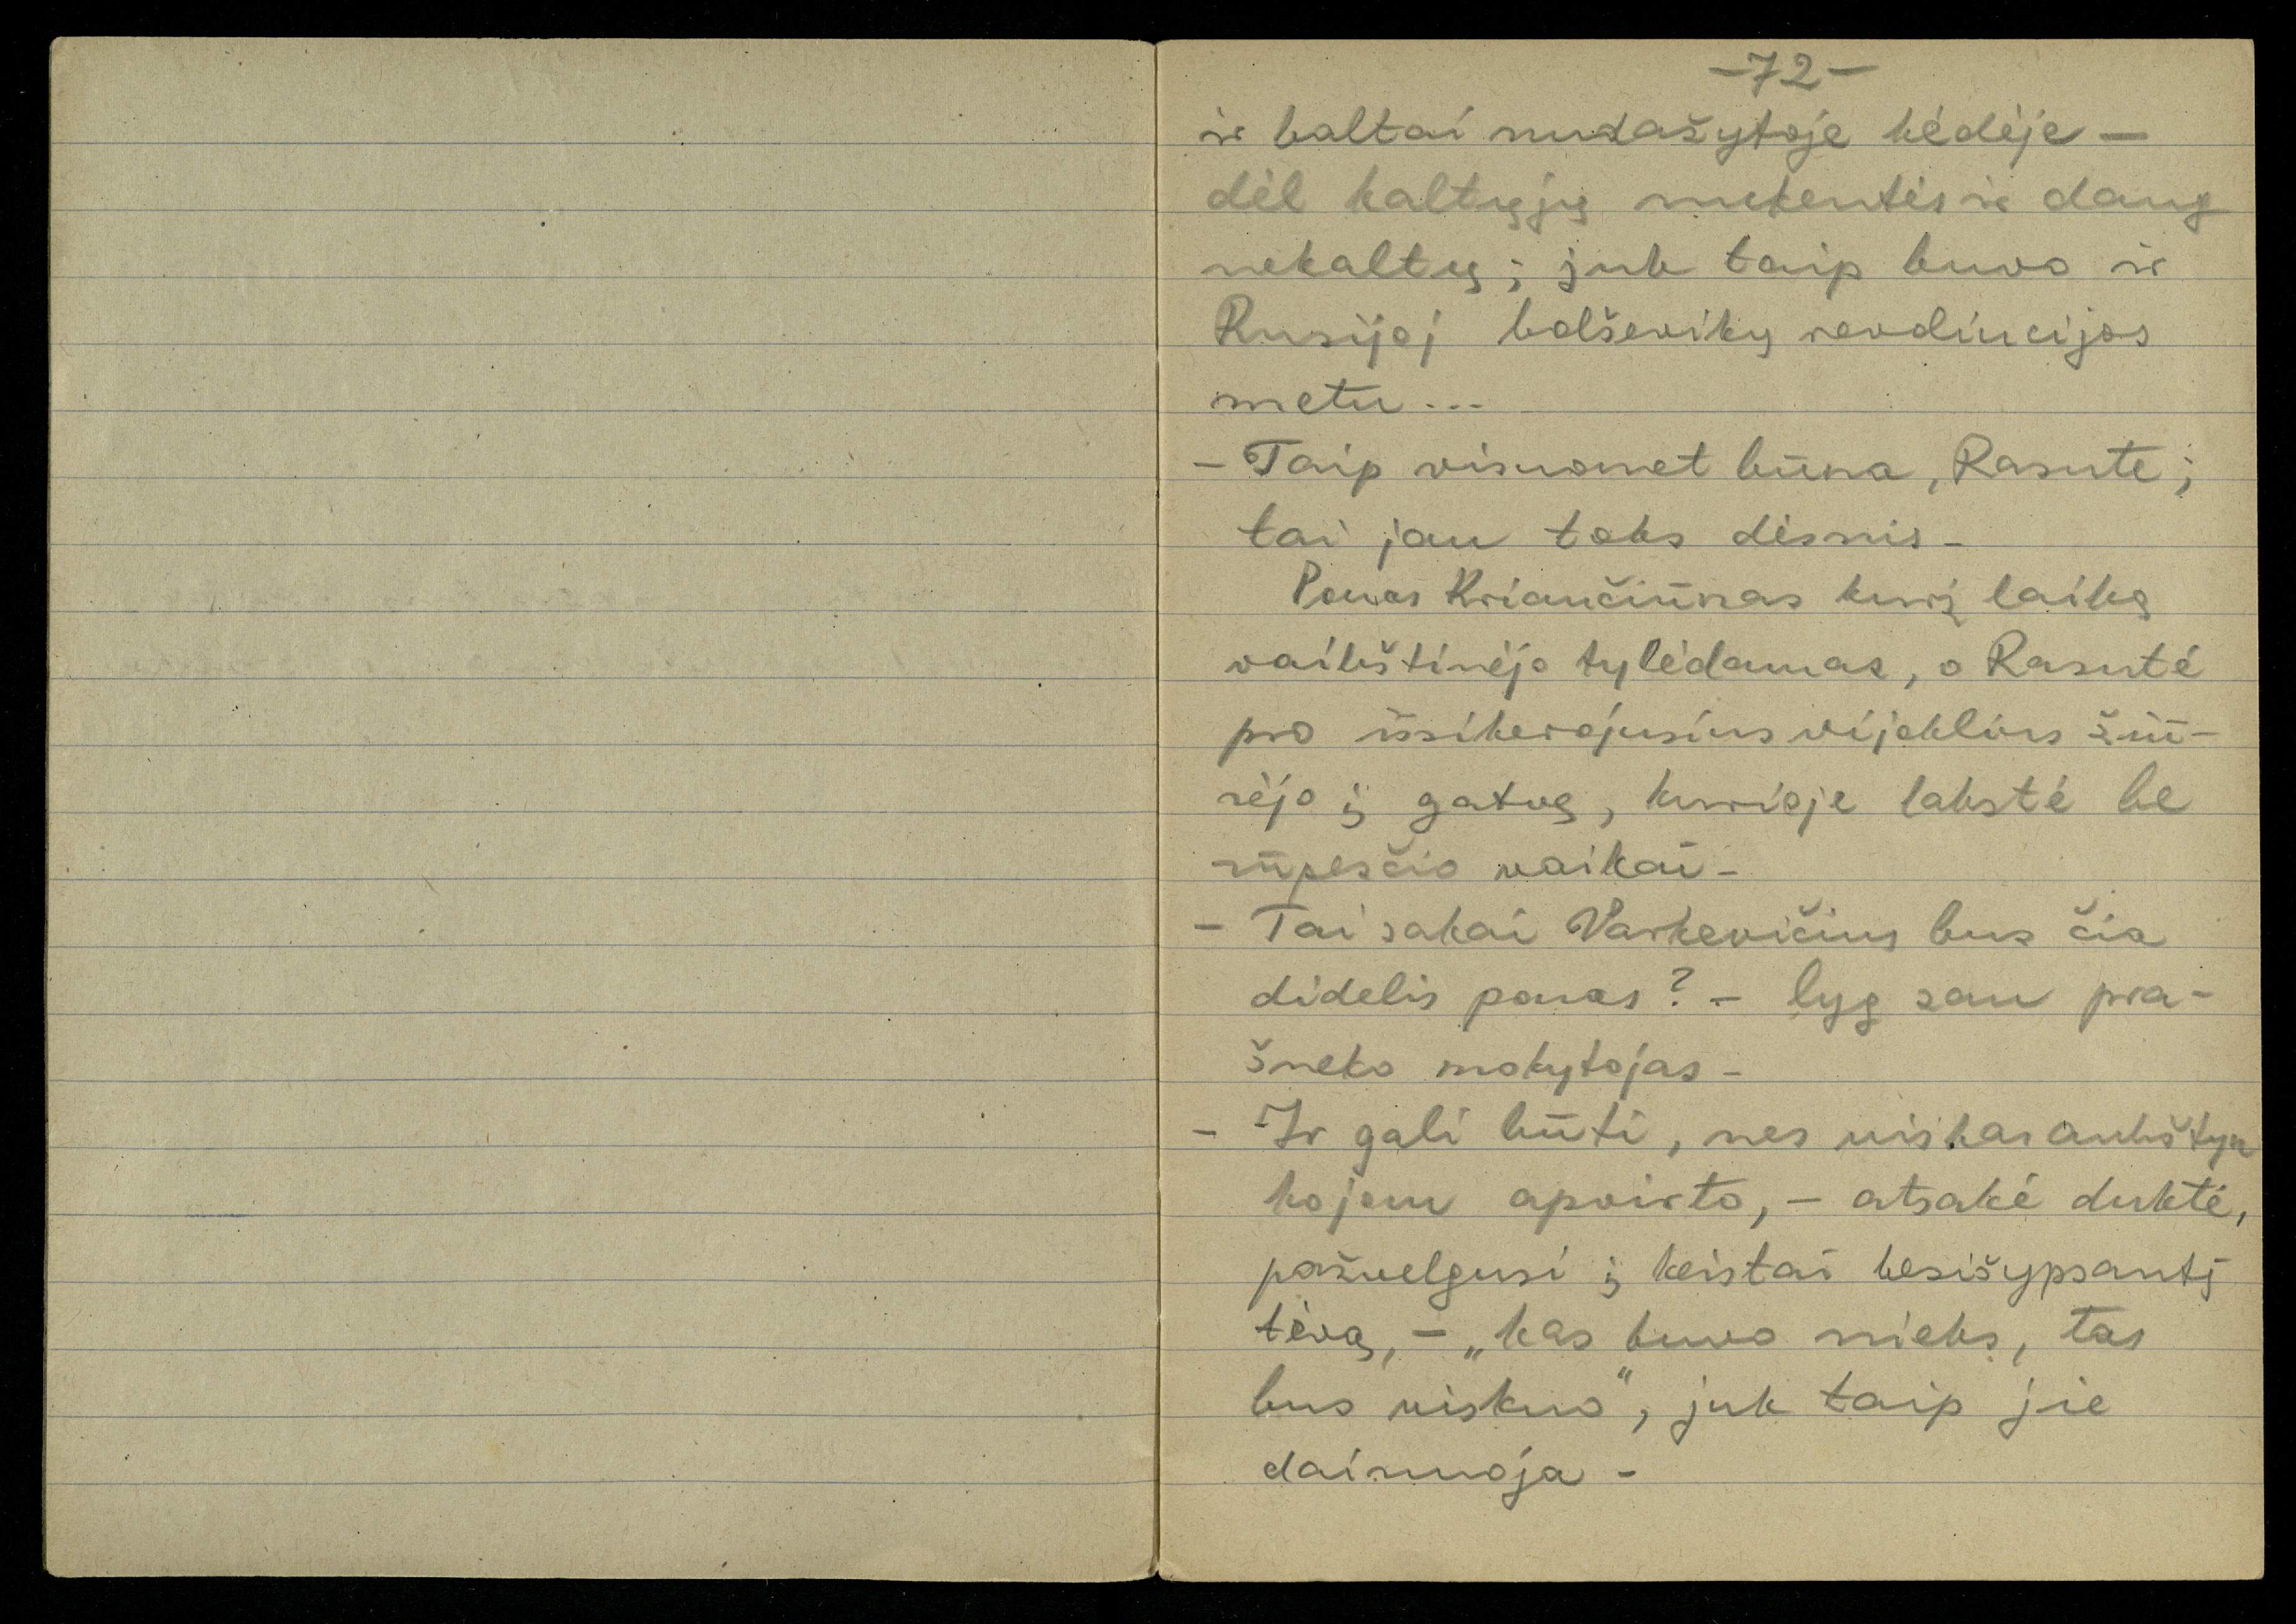 -72-
ir baltai nudažytoje kėdėje —
dėl kaltųjų nukentės ir daug
nekaltų; juk taip buvo ir
Rusijoj bolševikų revoliucijos
metu...
- Taip visuomet būna, Rasute;
tai jau toks dėsnis -
Ponas Kriaučiūnas kurį laiką
vaikštinėjo tylėdamas, o Rasutė
pro išsikerojusius vijoklius žiū-
rėjo į gatvę, kurioje lakstė be
rūpesčio vaikai -
- Tai sakai Varkevičius bus čia
didelis ponas? - lyg sau pra-
šneko mokytojas -
- Ir gali būti, nes viskas aukštyn
kojom apvirto, - atsakė duktė,
pažvelgusi į keistai besišypsantį
tėvą, - „kas buvo nieks, tas
bus viskuo", juk taip jie
dainuoja -